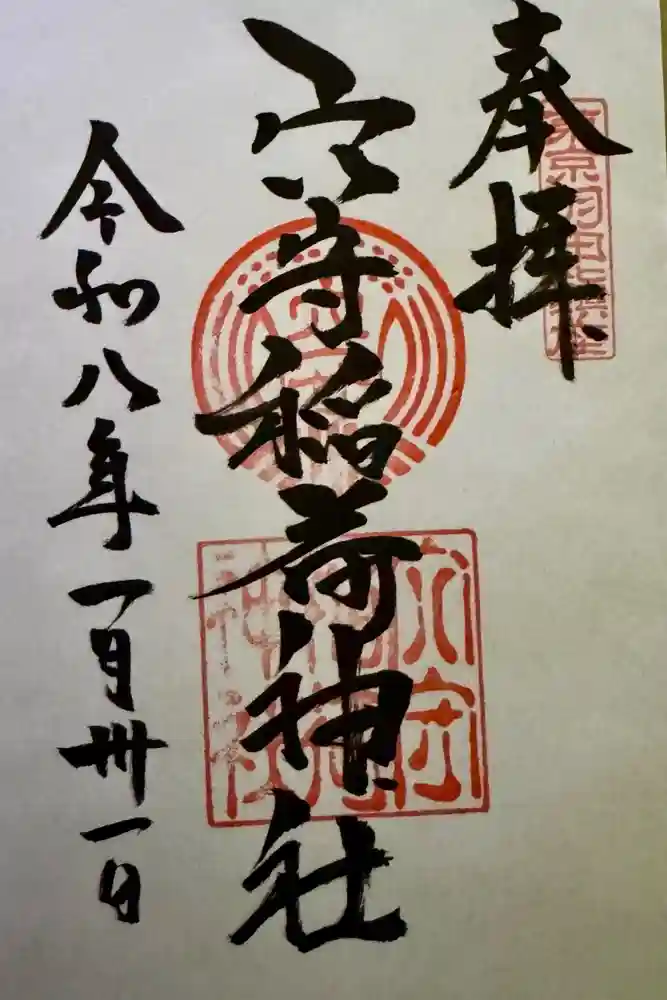 奉拝
東京羽田鎮座
穴守稲荷神社
穴守
稲荷
神社
令和八年一月卅一日